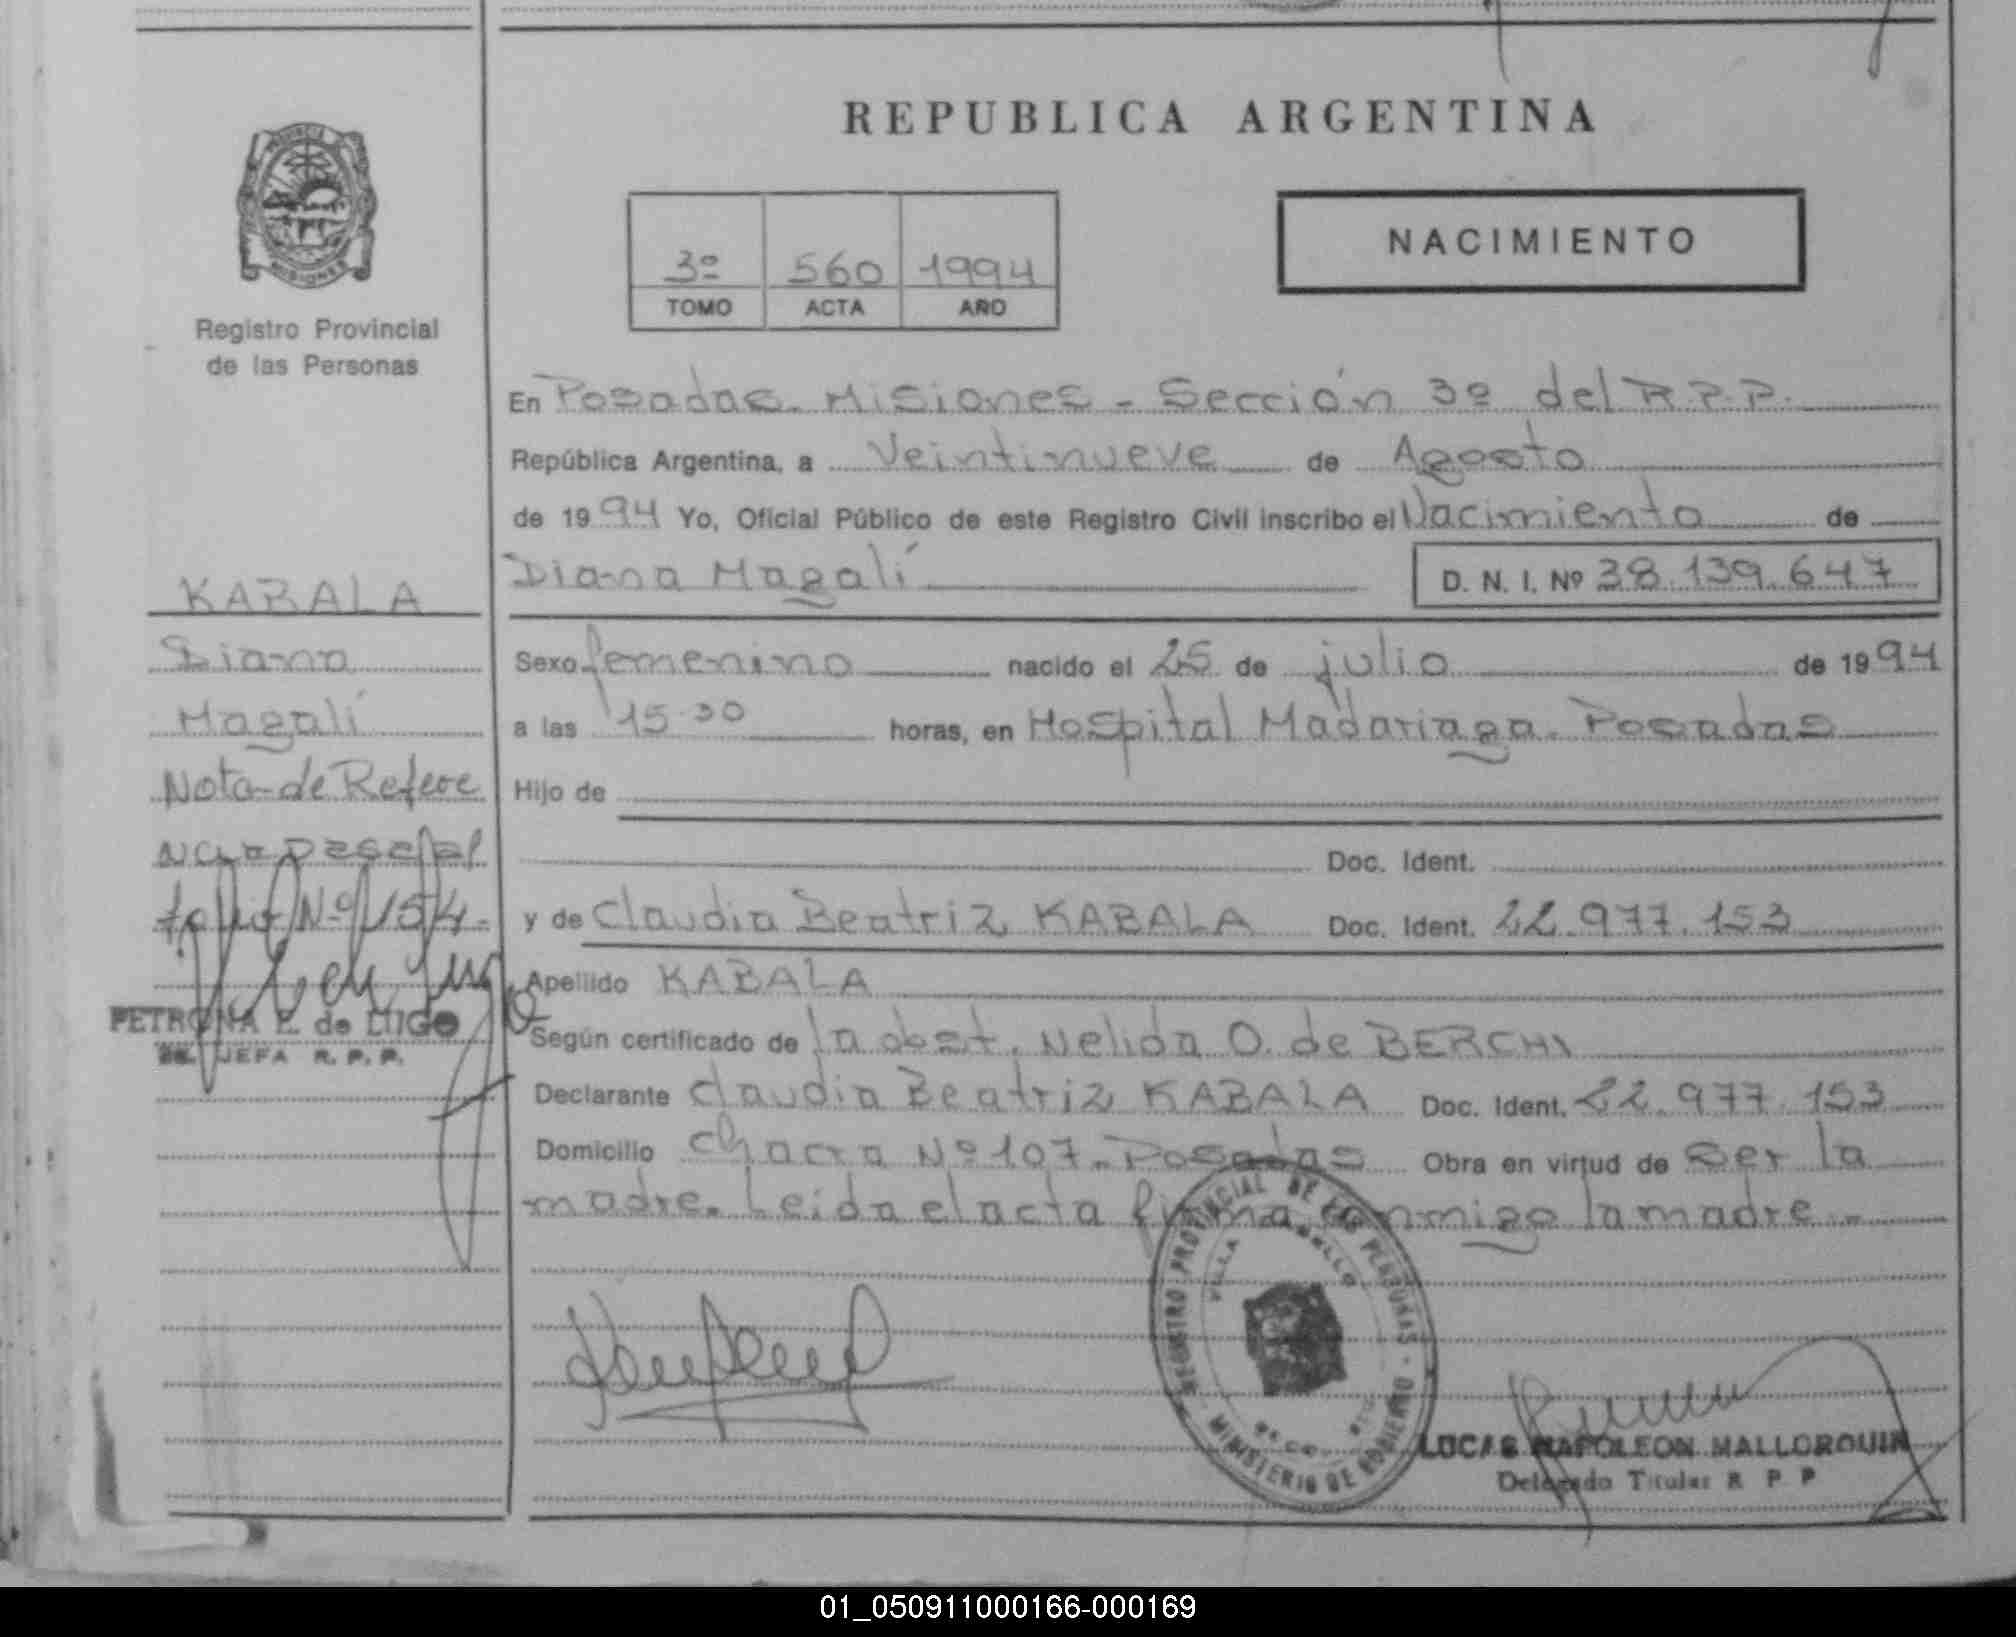 REPUBLICA ARGENTINA
PROVINCIA
MISIONES
Registro Provincial
de las Personas
3º 560 1994
TOMO ACTA AÑO
NACIMIENTO
En Posadas. Misiones - Sección 3º del R.P.P.
República Argentina, a Veintinueve de Agosto
de 1994 Yo, Oficial Público de este Registro Civil inscribo el Nacimiento de
Diana Magalí D. N. I. Nº 38.139.647
Sexo femenino nacido el 25 de julio de 1994
a las 15.30 horas, en Hospital Madariaga. Posadas
Hijo de
Doc. Ident.
y de Claudia Beatriz KABALA Doc. Ident. 22.977.153
Apellido KABALA
Según certificado de la obst. Nelida O. de BERCHI
Declarante Claudia Beatriz KABALA Doc. Ident. 22.977.153
Domicilio Chacra Nº 107. Posadas Obra en virtud de ser la
madre. Leida el acta firma conmigo la madre.-
KABALA
Diana
Magalí
Nota de Refere
ncia pasa al
folio Nº 154.
PETRONA E. de LUGO
JEFA R. P. P.
REGISTRO PROVINCIAL DE LAS PERSONAS - MINISTERIO DE GOBIERNO
VILLA
LUCAS NAPOLEON MALLORQUIN
Delegado Titular R. P. P
01_050911000166-000169